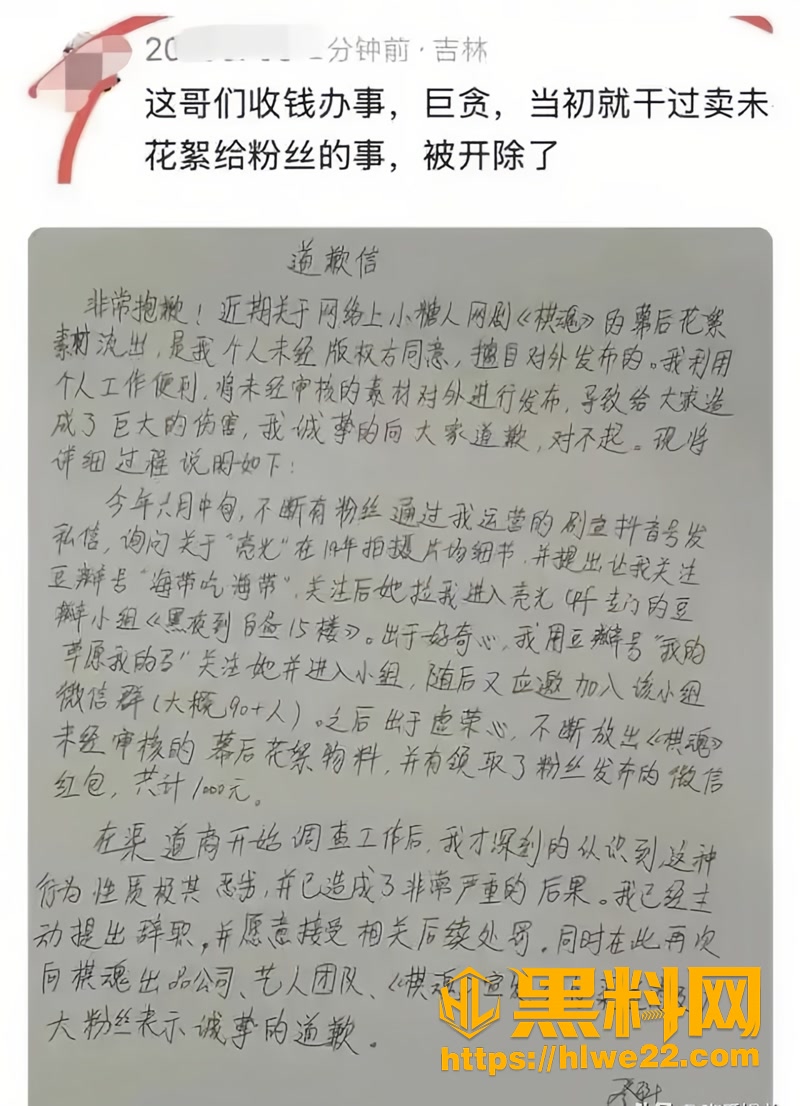 分钟前·吉林
这哥们收钱办事，巨贪，当初就干过卖未
花絮给粉丝的事，被开除了
道歉信
非常抱歉！近期关于网络上小糖人网剧《棋魂》的幕后花絮
素材流出，是我个人未经版权方同意，擅自对外发布的。我利用
个人工作便利，将未经审核的素材对外进行发布，导致给大家造
成了巨大的伤害，我诚挚的向大家道歉，对不起。现将
详细过程说明如下：
今年六月中旬，不断有粉丝通过我运营的剧宣抖音号发
私信，询问关于“亮光”在19年拍摄片场细节，并提出让我关注
豆瓣号“海带吃海带”，关注后她拉我进入亮光CP专门的豆
瓣小组《黑夜到白昼15楼》。出于好奇心，我用豆瓣号“我的
草原我的”关注她并进入小组，随后又应邀加入该小组
微信群（大概90+人）。之后出于虚荣心，不断放出《棋魂》
未经审核的幕后花絮物料，并有领取了粉丝发布的微信
红包，共计1000元。
在渠道商开始调查工作后，我才深刻的认识到这种
行为性质极其恶劣，并已造成了非常严重的后果。我已经主
动提出辞职，并愿意接受相关后续处罚。同时在此再次
向棋魂出品公司、艺人团队、《棋魂》宣发
大粉丝表示诚挚的道歉。
黑料网
https://hlwe22.com